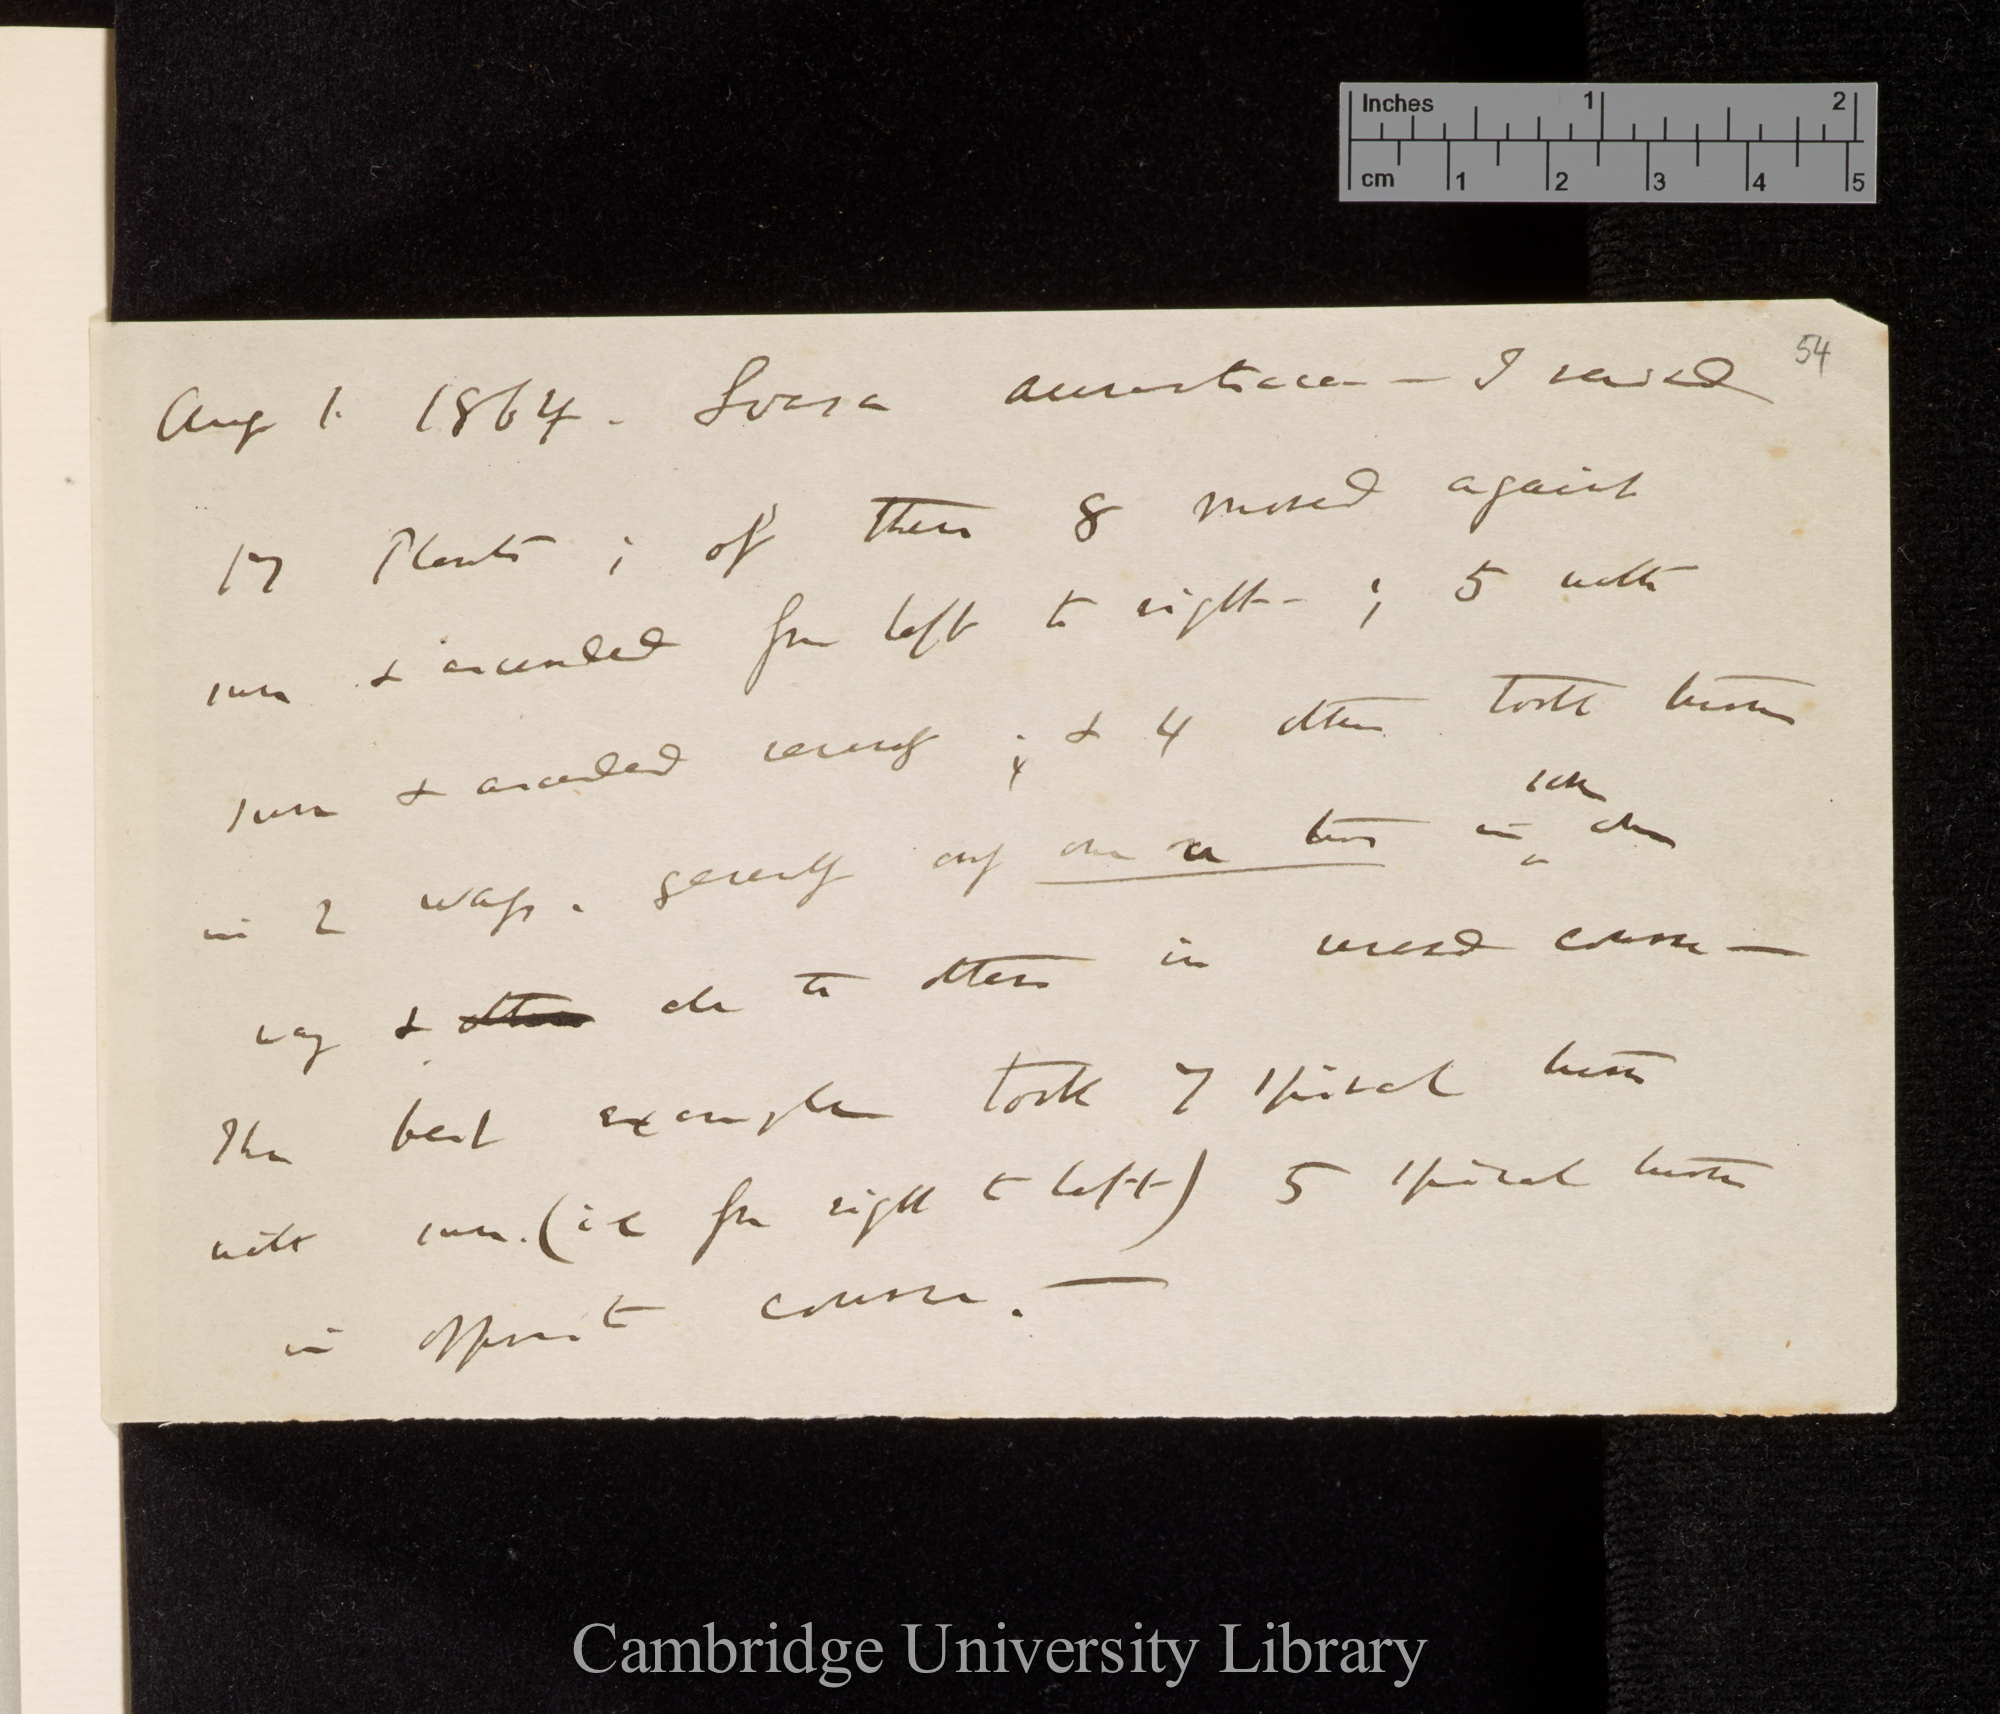 Inches 1 2
cm 1 2 3 4 5
54
Aug 1. 1864. Loasa aurantiaca — I raised
17 Plants ; of these 8 moved against
sun & ascended from left to right — ; 5 with
sun & ascended reversely ; & 4 others took turns
in 2 ways. generally only one or two in
way & others to others in reversed course —
The best example took 7 spiral turns
with sun. (ie from right to left) 5 spiral turns
in opposite course. —
Cambridge University Library